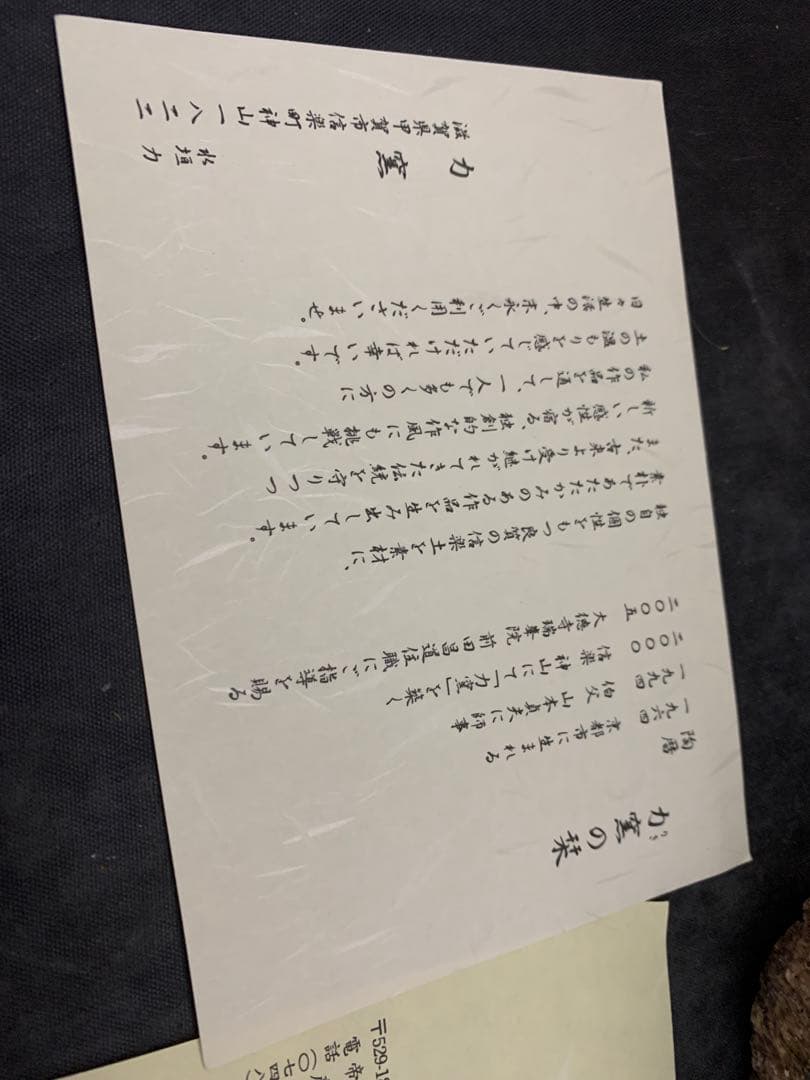 力窯の栞
りき
陶暦
一九六四 京都市に生まれる
一九九四 伯父 山本貞夫に師事
二〇〇〇 信楽神山にて「力窯」を築く
二〇〇五 大徳寺瑞峯院 前田昌道住職にご指導を賜る
独自の個性をもつ良質の信楽土を素材に、
素朴であたたかみのある作品を生み出しています。
また、古来より受け継がれてきた伝統を守りつつ
新しい感性が宿る、独創的な作風にも挑戦しています。
私の作品を通して、一人でも多くの方に
土の温もりを感じていただければ幸いです。
日々生活の中、末永くご利用くださいませ。
力窯
滋賀県甲賀市信楽町神山一八二二
水垣 力
〒529-18
電話(〇七四八